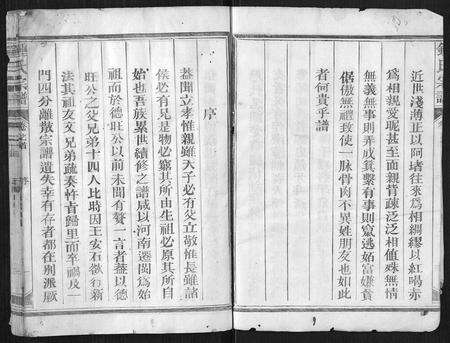 近世淺薄正以阿堵往來為相綢繆以紅喝赤
為相親愛昵甚至血親骨疎泛泛相值殊無情
無義無事則弄成箕繫有事則竄逃妬富嫌貧
倨傲無禮致使一脉骨肉不異姓朋友也如此
者何貴乎譜
序
蓋聞立孝惟親雖天子必有父立敬惟長雖諸
侯必有兄是物必窮其所由生祖必原其所自
始也吾族累世續修之譜咸以河南遷閩為始
祖而於德旺公以前未聞有贅一言者蓋以德
旺公之父兄弟十四人比時因王安石欲行新
法其祖友文兄弟疏奏忤旨歸里而卒禍及一
門四分離散宗譜遺失幸有存者都在別派厥
鍾氏宗譜